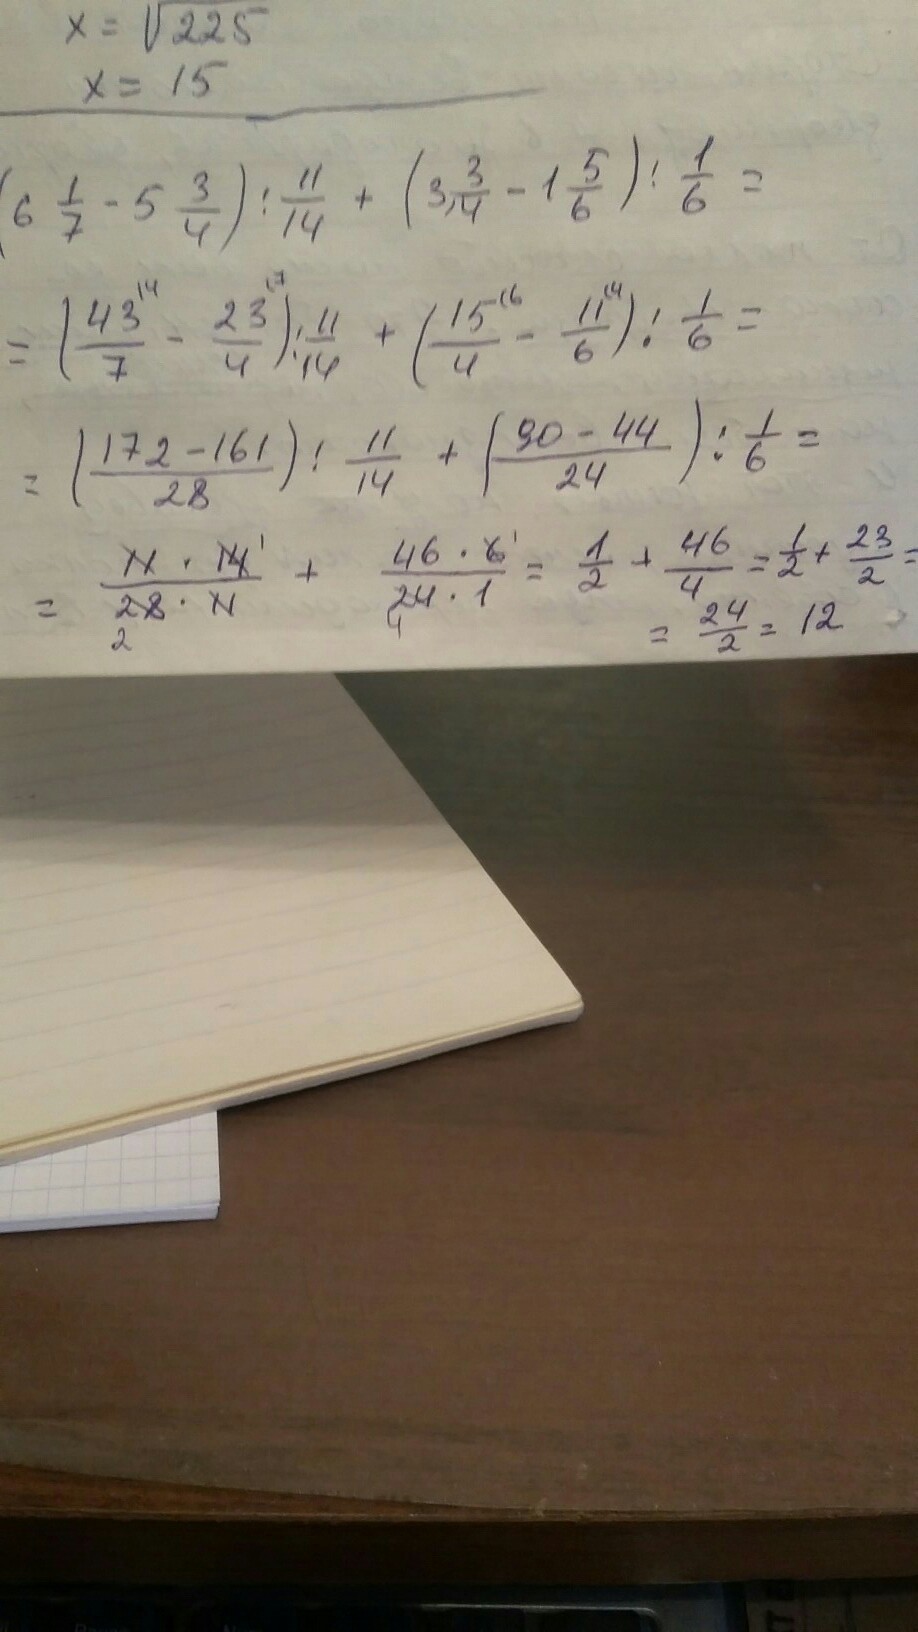 x = √225
x = 15
(6 1/7 - 5 3/4) : 11/14 + (3 3/4 - 1 5/6) : 1/6 =
= (43/7 \4 - 23/4 \7) : 11/14 + (15/4 \6 - 11/6 \4) : 1/6 =
= ((172 - 161)/28) : 11/14 + ((90 - 44)/24) : 1/6 =
= (11 · 14)/(28 · 11) + (46 · 6)/(24 · 1) = 1/2 + 46/4 = 1/2 + 23/2 =
= 24/2 = 12